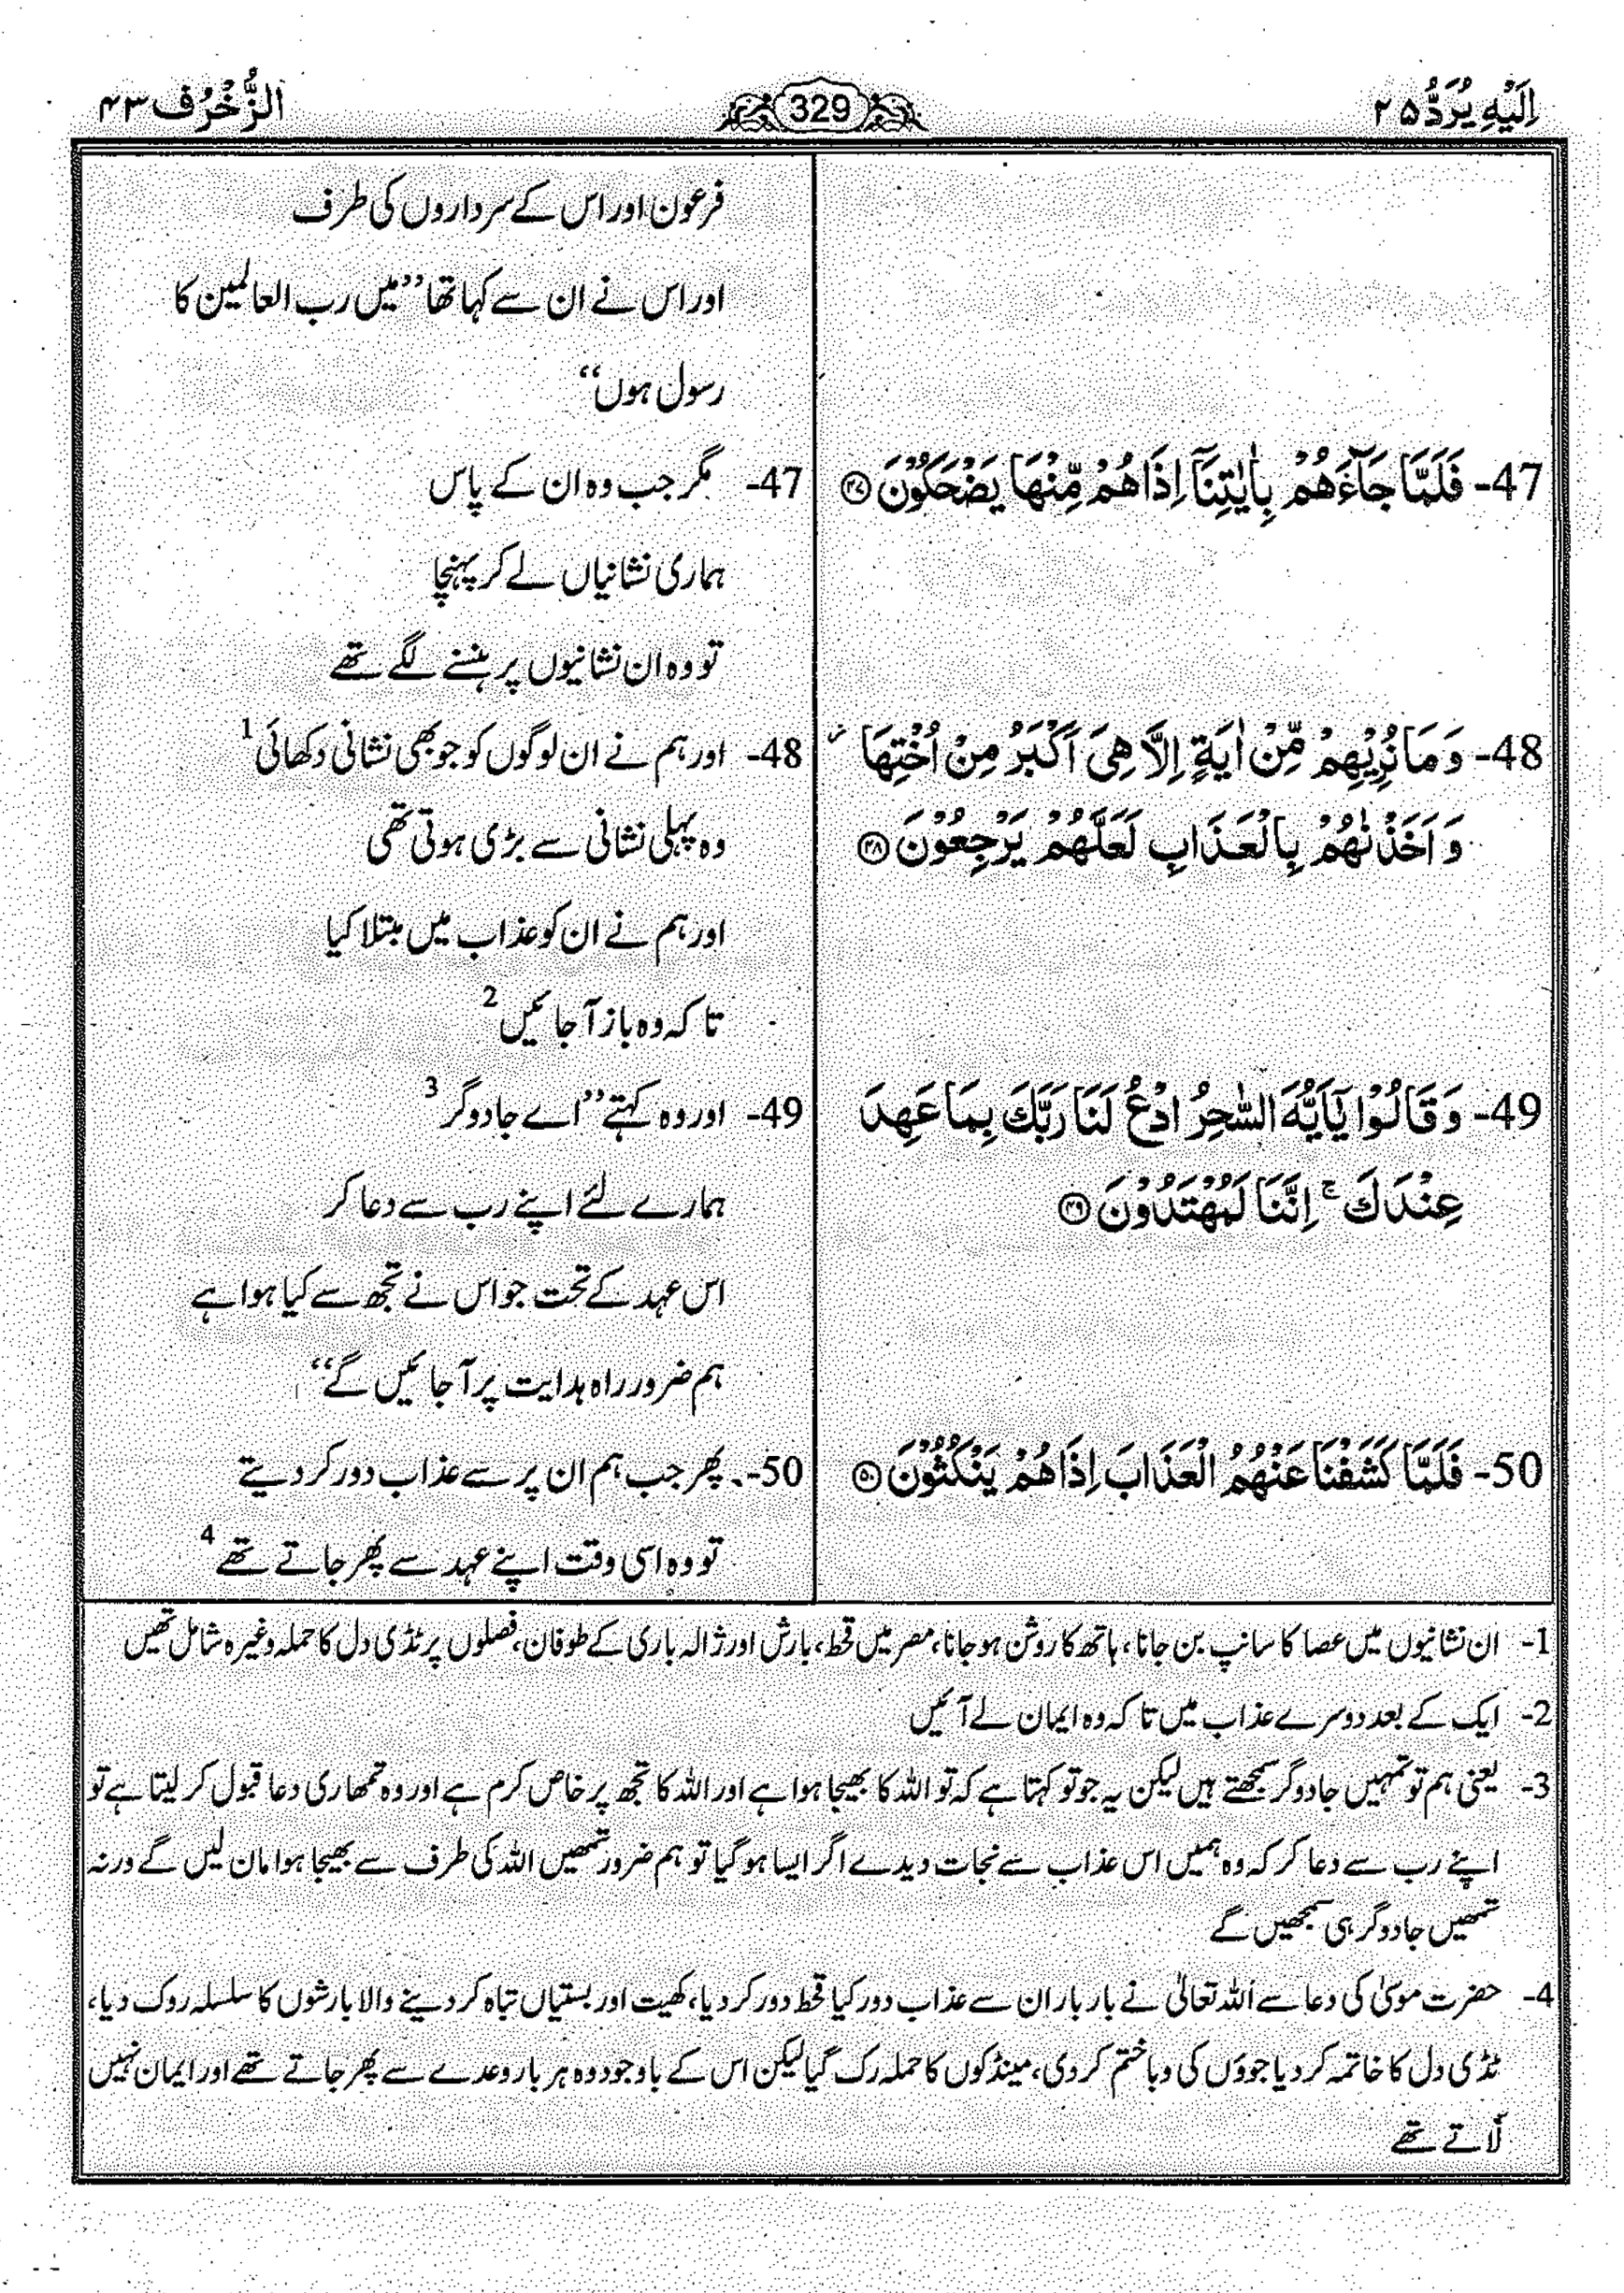 اِلَیْهِ یُرَدُّ ۲۵
329
الزُّخْرُف ۴۳
فرعون اور اس کے سرداروں کی طرف
اور اس نے ان سے کہا تھا ’’میں رب العالمین کا
رسول ہوں‘‘
47- فَلَمَّا جَآءَهُمْ بِاٰیٰتِنَاۤ اِذَا هُمْ مِّنْهَا یَضْحَكُوْنَ ﴿۴۷﴾
47- مگر جب وہ ان کے پاس
ہماری نشانیاں لے کر پہنچا
تو وہ ان نشانیوں پر ہنسنے لگے تھے
48- وَ مَا نُرِیْهِمْ مِّنْ اٰیَةٍ اِلَّا هِیَ اَكْبَرُ مِنْ اُخْتِهَا ؗ
وَ اَخَذْنٰهُمْ بِالْعَذَابِ لَعَلَّهُمْ یَرْجِعُوْنَ ﴿۴۸﴾
48- اور ہم نے ان لوگوں کو جو بھی نشانی دکھائی 1
وہ پہلی نشانی سے بڑی ہوتی تھی
اور ہم نے ان کو عذاب میں مبتلا کیا
تا کہ وہ باز آ جائیں 2
49- وَ قَالُوْا یٰۤاَیُّهَ السّٰحِرُ ادْعُ لَنَا رَبَّكَ بِمَا عَهِدَ
عِنْدَكَ ۚ اِنَّنَا لَمُهْتَدُوْنَ ﴿۴۹﴾
49- اور وہ کہتے ’’اے جادوگر 3
ہمارے لئے اپنے رب سے دعا کر
اس عہد کے تحت جو اس نے تجھ سے کیا ہوا ہے
ہم ضرور راہ ہدایت پر آ جائیں گے‘‘
50- فَلَمَّا كَشَفْنَا عَنْهُمُ الْعَذَابَ اِذَا هُمْ یَنْكُثُوْنَ ﴿۵۰﴾
50- پھر جب ہم ان پر سے عذاب دور کر دیتے
تو وہ اسی وقت اپنے عہد سے پھر جاتے تھے 4
1- ان نشانیوں میں عصا کا سانپ بن جانا، ہاتھ کا روشن ہو جانا، مصر میں قحط، بارش اور ژالہ باری کے طوفان، فصلوں پر ٹڈی دل کا حملہ وغیرہ شامل تھیں
2- ایک کے بعد دوسرے عذاب میں تا کہ وہ ایمان لے آئیں
3- یعنی ہم تو تمہیں جادوگر سمجھتے ہیں لیکن یہ جو تو کہتا ہے کہ تو اللہ کا بھیجا ہوا ہے اور اللہ کا تجھ پر خاص کرم ہے اور وہ تمھاری دعا قبول کر لیتا ہے تو
اپنے رب سے دعا کر کہ وہ ہمیں اس عذاب سے نجات دیدے اگر ایسا ہو گیا تو ہم ضرور تمھیں اللہ کی طرف سے بھیجا ہوا مان لیں گے ورنہ
تمھیں جادوگر ہی سمجھیں گے
4- حضرت موسیٰ کی دعا سے اللہ تعالیٰ نے بار بار ان سے عذاب دور کیا قحط دور کر دیا، کھیت اور بستیاں تباہ کر دینے والا بارشوں کا سلسلہ روک دیا،
ٹڈی دل کا خاتمہ کر دیا جوؤں کی وبا ختم کر دی، مینڈکوں کا حملہ رک گیا لیکن اس کے باوجود وہ ہر بار وعدے سے پھر جاتے تھے اور ایمان نہیں
لاتے تھے